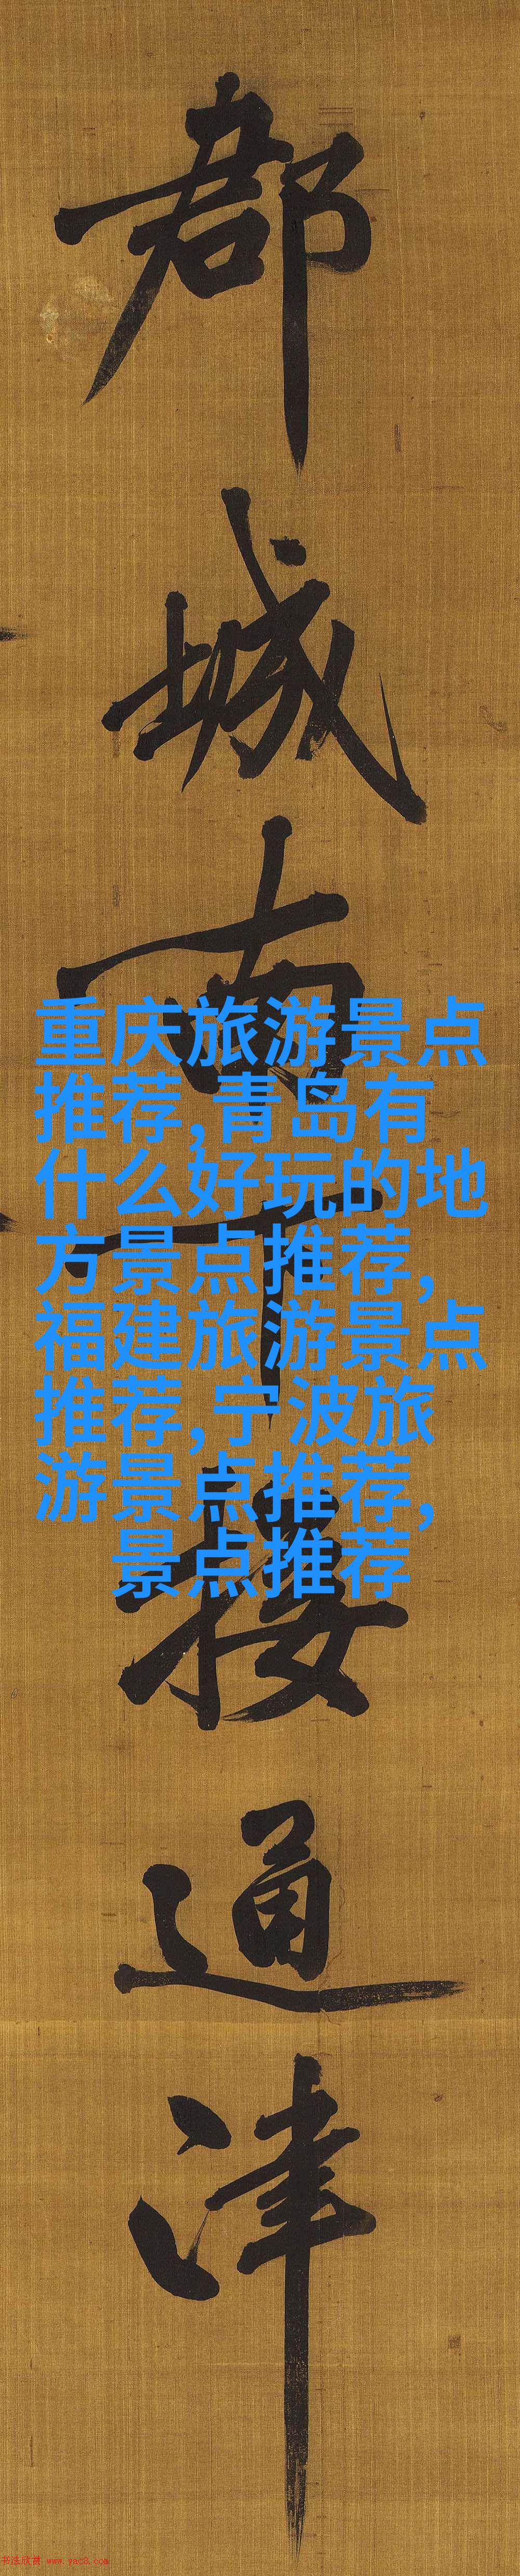 郡城南下接通津
重庆旅游景点
推荐,青岛有
什么好玩的地
方景点推荐,
福建旅游景点
推荐,宁波旅
游景点推荐,
景点推荐
书法欣赏 www.yac8.com